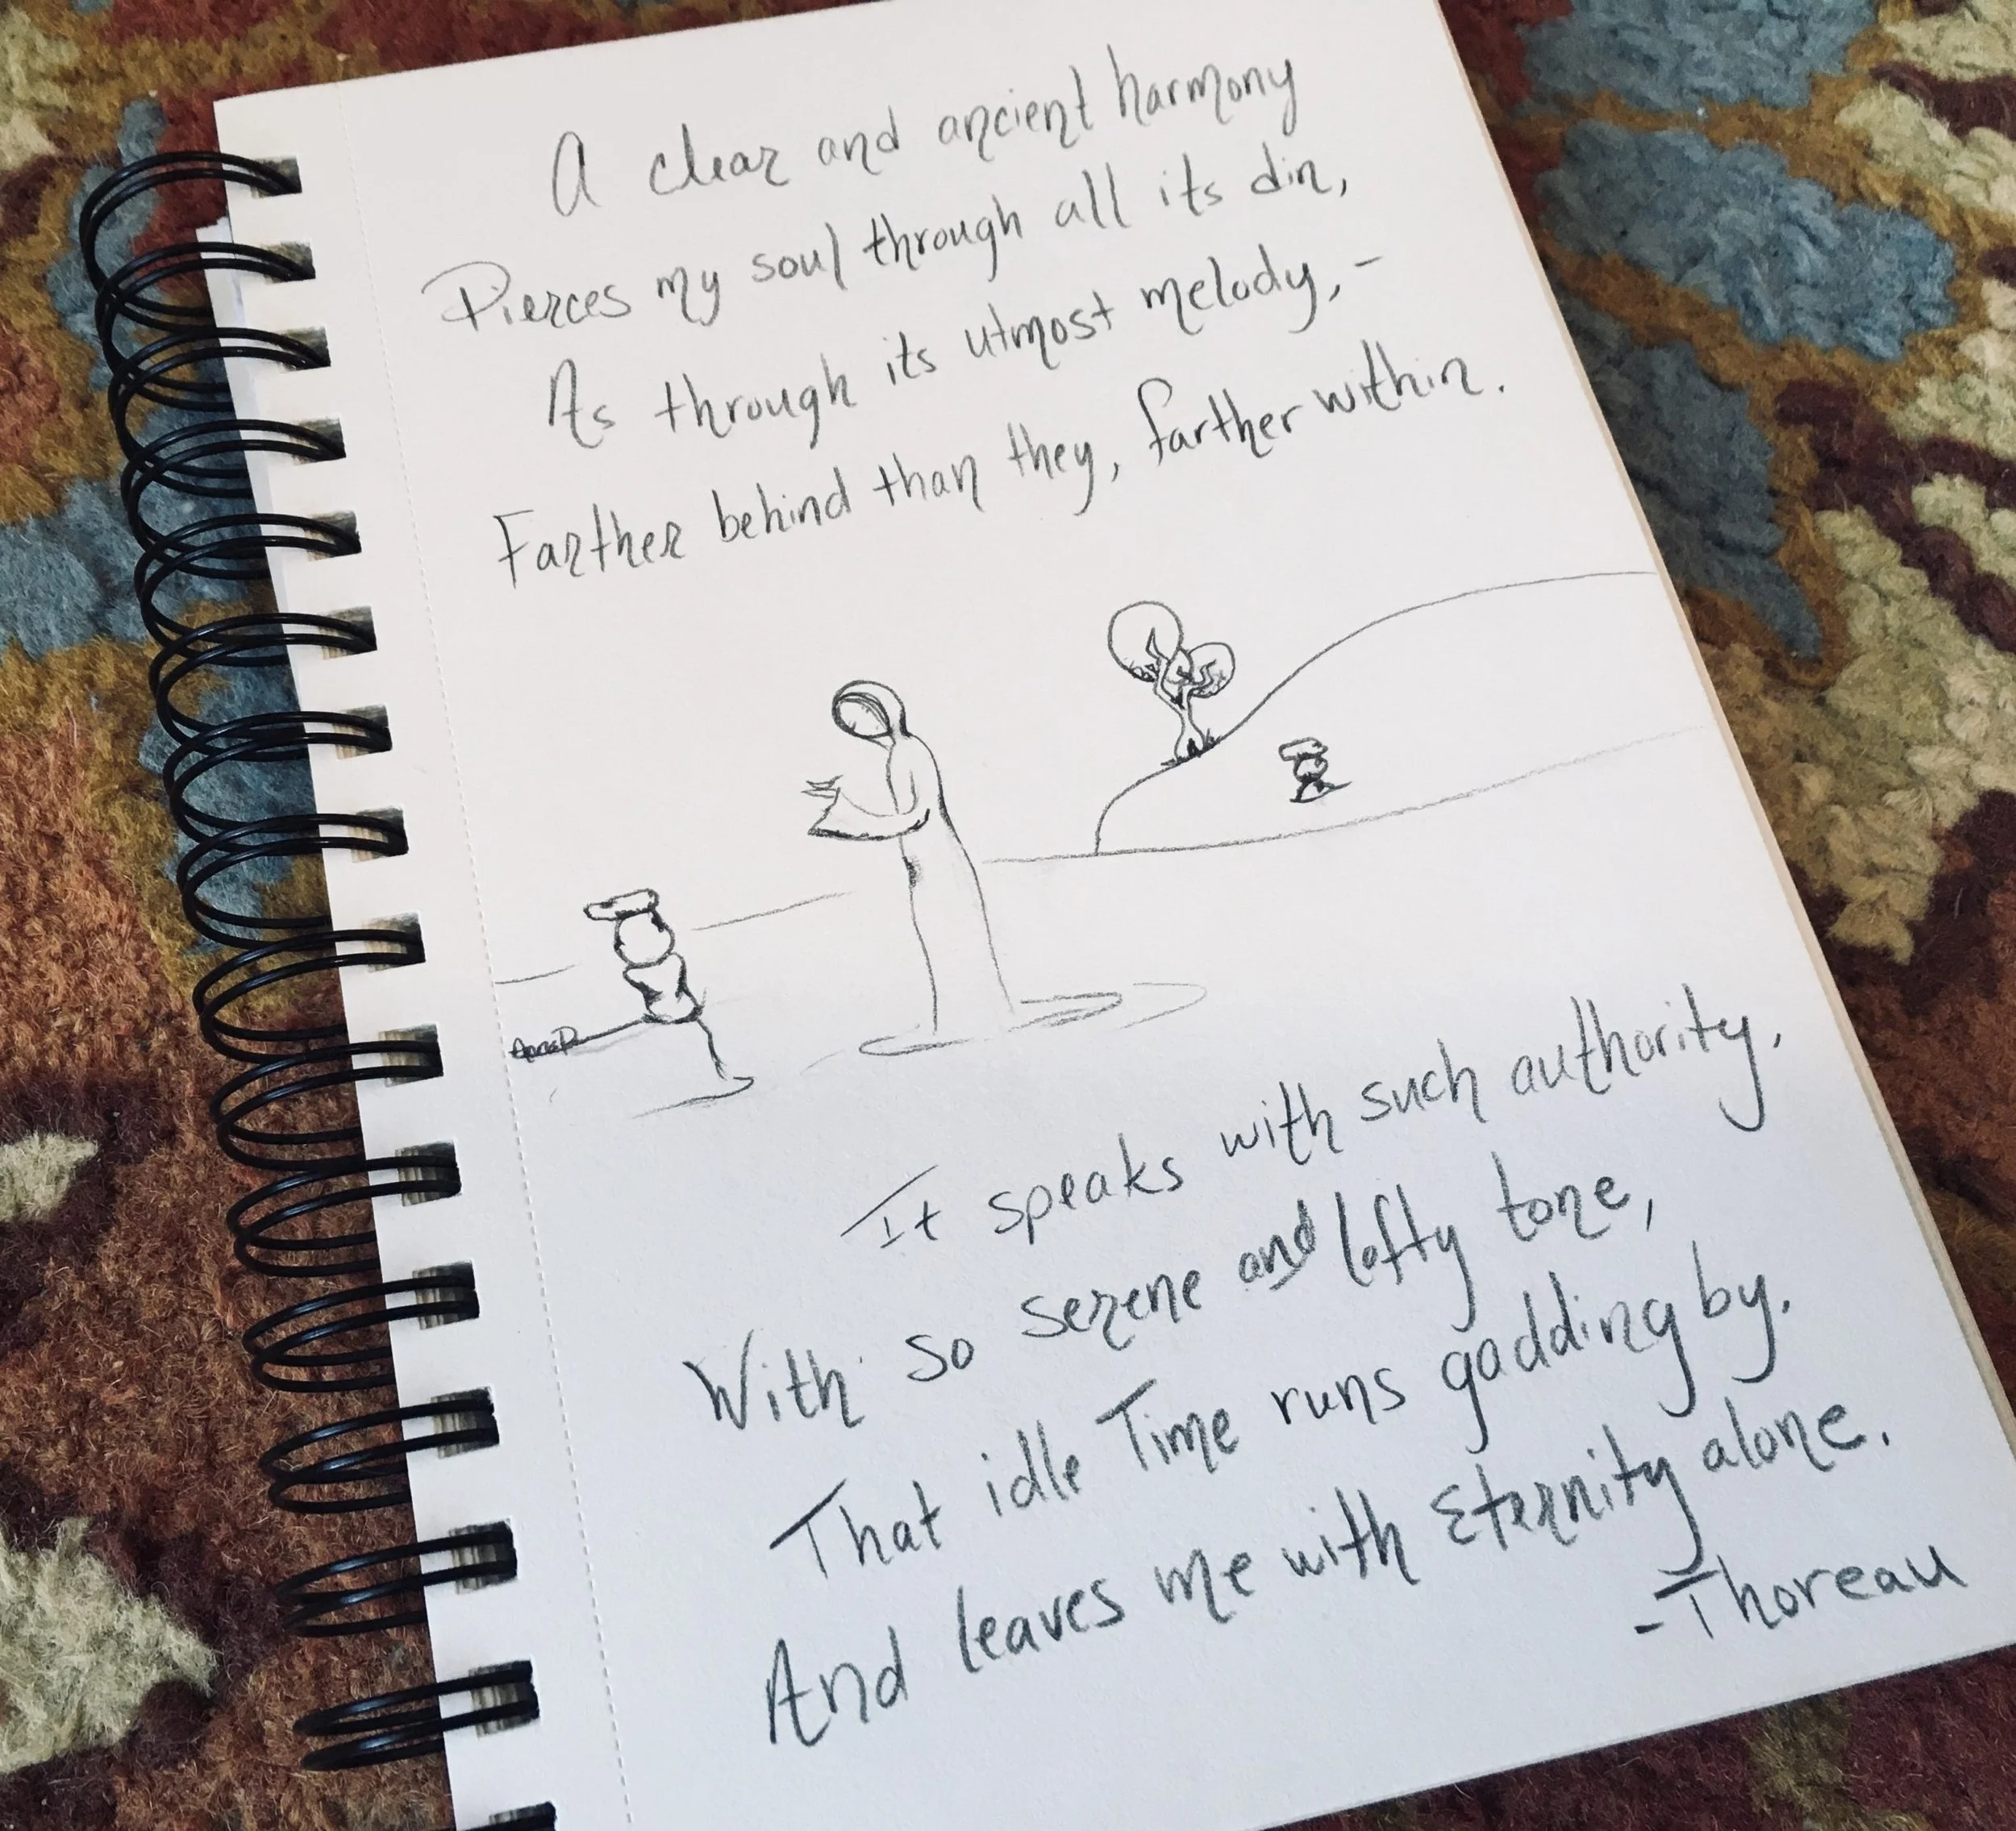 A clear and ancient harmony
Pierces my soul through all its din,
As through its utmost melody,-
Farther behind than they, farther within.
It speaks with such authority,
With so serene and lofty tone,
That idle Time runs gadding by.
And leaves me with Eternity alone.
-Thoreau